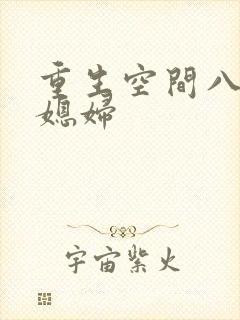 重生空間八
媳婦
宇宙紫火